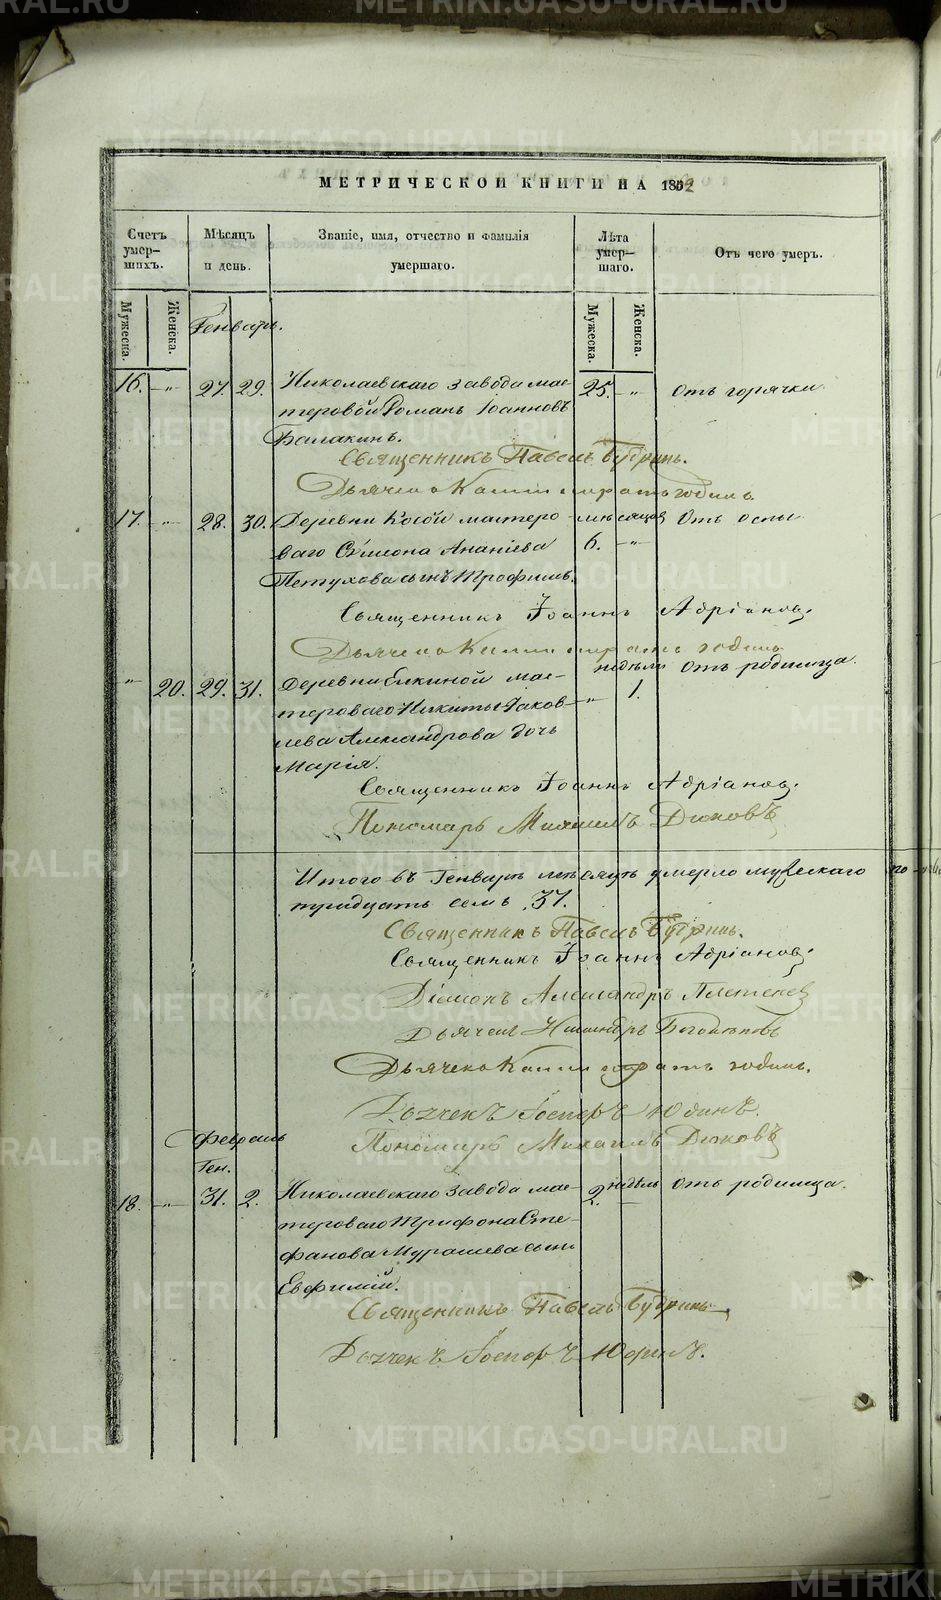 METRIKI.GASO-URAL.RU
МЕТРИЧЕСКОЙ КНИГИ НА 1852
Счетъ умер-шихъ.
Мѣсяцъ и день.
Званіе, имя, отчество и фамилія умершаго.
Лѣта умер-шаго.
Отъ чего умеръ.
Мужеска.
Женска.
Мужеска.
Женска.
Генварь.
16. -„- 27. 29. Николаевскаго завода мас- 25. -„- Отъ горячки
теровой Романъ Іоанновъ
Балакинъ.
Священникъ Павелъ
Дьячекъ
17. -„- 28. 30. Деревни Косой мастеро- мѣсяцов Отъ оспы
ваго Сѵмеона Ананіева 6. -„-
Петухова сынъ Трофимъ.
Священникъ Іоаннъ Адріановъ.
Дьячекъ
недѣли Отъ родимца.
„ 20. 29. 31. Деревни Елкиной мас- -„- 1.
тероваго Никиты Яков-
лева Александрова дочь
Марія.
Священникъ Іоаннъ Адріановъ.
Пономарь Михаилъ Дюковъ
Итого въ Генварѣ мѣсяцѣ умерло мужескаго по-
тридцать семь 37.
Священникъ Павелъ
Священникъ Іоаннъ Адріановъ.
Діаконъ Александръ Плетенев
Дьячекъ
Дьячекъ
Дьячекъ Іосифъ Юдинъ.
Пономарь Михаилъ Дюковъ
Февраль
Ген.
18. -„- 31. 2. Николаевскаго завода мас- 2. недѣль Отъ родимца.
тероваго Трифона Сте-
фанова Мурашева сынъ
Евфимій.
Священникъ Павелъ
Дьячекъ Іосифъ Юдинъ.